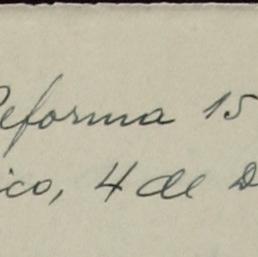 Reforma 15
ico, 4 de D